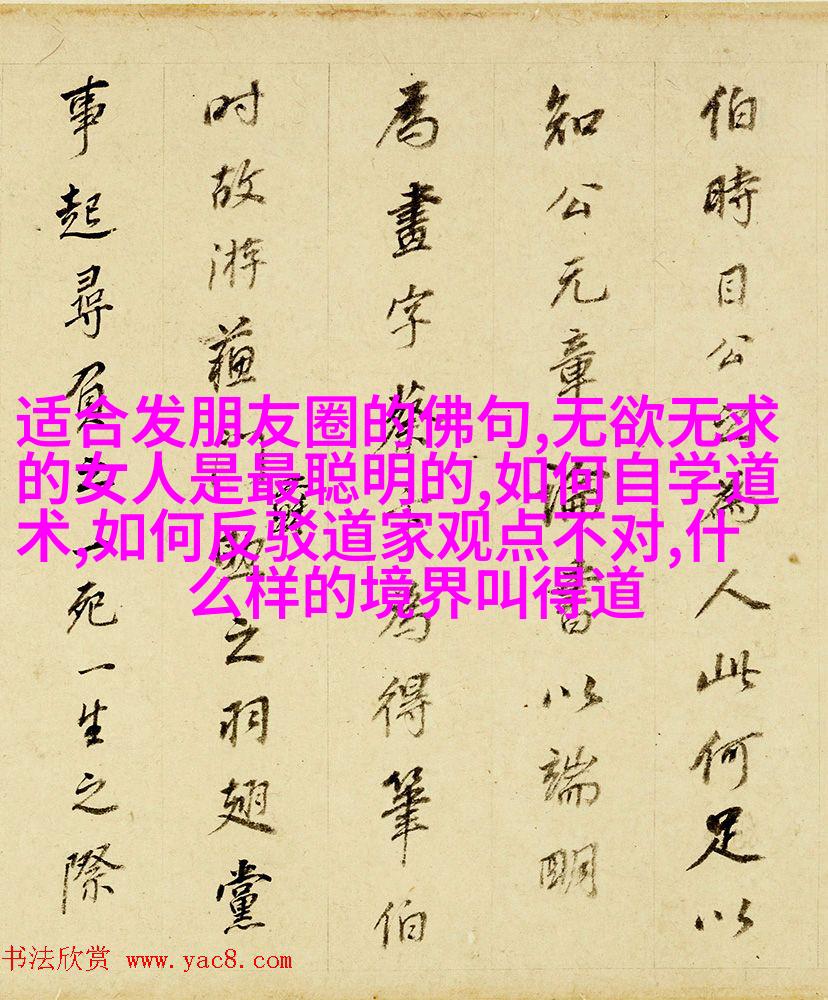 适合发朋友圈的佛句,无欲无求
的女人是最聪明的,如何自学道
术,如何反驳道家观点不对,什
么样的境界叫得道
伯時目公為人此何足以
知公元章書以端明
為畫字蔡為得筆伯
时故游蘓之羽翅黨
事起尋負一死一生之際
书法欣赏 www.yac8.com